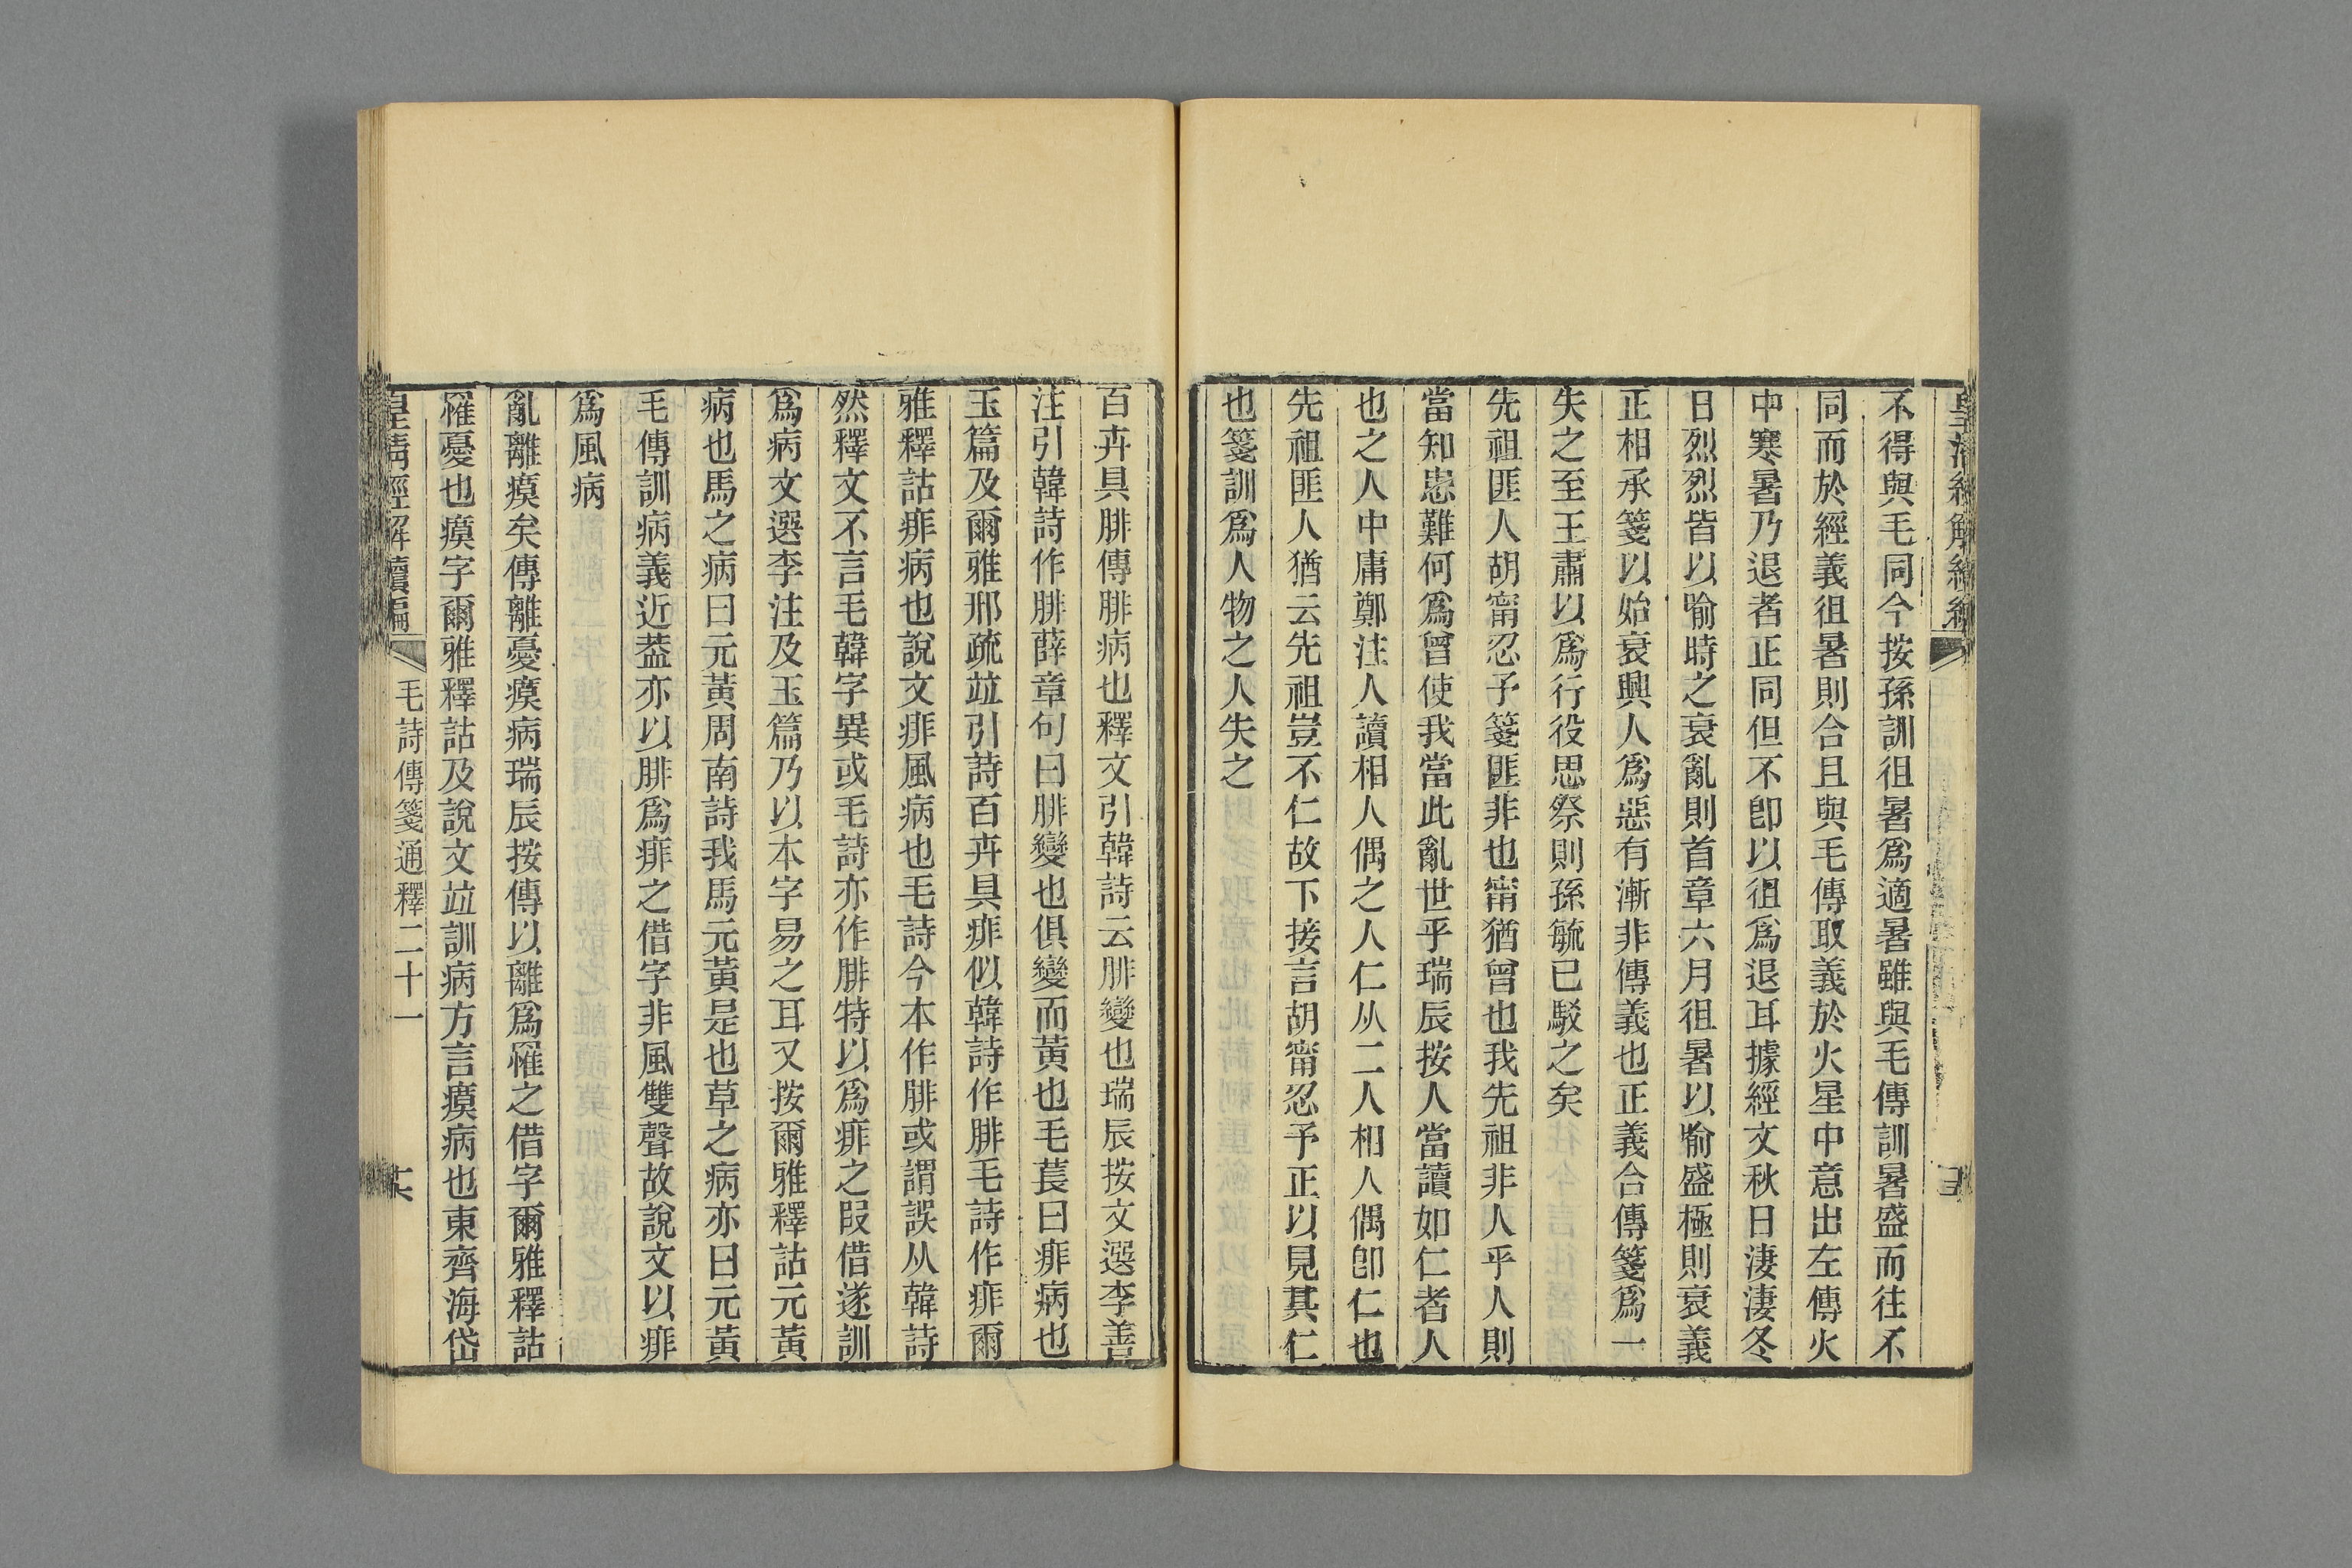 不得與毛同今按孫訓徂暑爲適暑雖與毛傳訓暑盛而往不
同而於經義徂暑則合且與毛傳取義於火星中意出左傳火
中寒暑乃退者正同但不卽以徂爲退耳據經文秋日淒淒冬
日烈烈皆以喻時之衰亂則首章六月徂暑以喻盛極則衰義
正相承箋以始衰興人爲惡有漸非傳義也正義合傳箋爲一
失之至王肅以爲行役思祭則孫毓已駁之矣
先祖匪人胡甯忍予箋匪非也甯猶曾也我先祖非人乎人則
當知患難何爲曾使我當此亂世乎瑞辰按人當讀如仁者人
也之人中庸鄭注人讀相人偶之人仁从二人相人偶卽仁也
先祖匪人猶云先祖豈不仁故下接言胡甯忍予正以見其仁
也箋訓爲人物之人失之
百卉具腓傳腓病也釋文引韓詩云腓變也瑞辰按文選李善
注引韓詩作腓薛章句曰腓變也俱變而黃也毛萇曰痱病也
玉篇及爾雅邢疏竝引詩百卉具痱似韓詩作腓毛詩作痱爾
雅釋詁痱病也說文痱風病也毛詩今本作腓或謂誤从韓詩
然釋文不言毛韓字異或毛詩亦作腓特以爲痱之叚借遂訓
爲病文選李注及玉篇乃以本字易之耳又按爾雅釋詁元黃
病也馬之病曰元黃周南詩我馬元黃是也草之病亦曰元黃
毛傳訓病義近葢亦以腓爲痱之借字非風雙聲故說文以痱
爲風病
亂離瘼矣傳離憂瘼病瑞辰按傳以離爲罹之借字爾雅釋詁
罹憂也瘼字爾雅釋詁及說文竝訓病方言瘼病也東齊海岱
皇淸經解續編 毛詩傳箋通釋二十一 十六